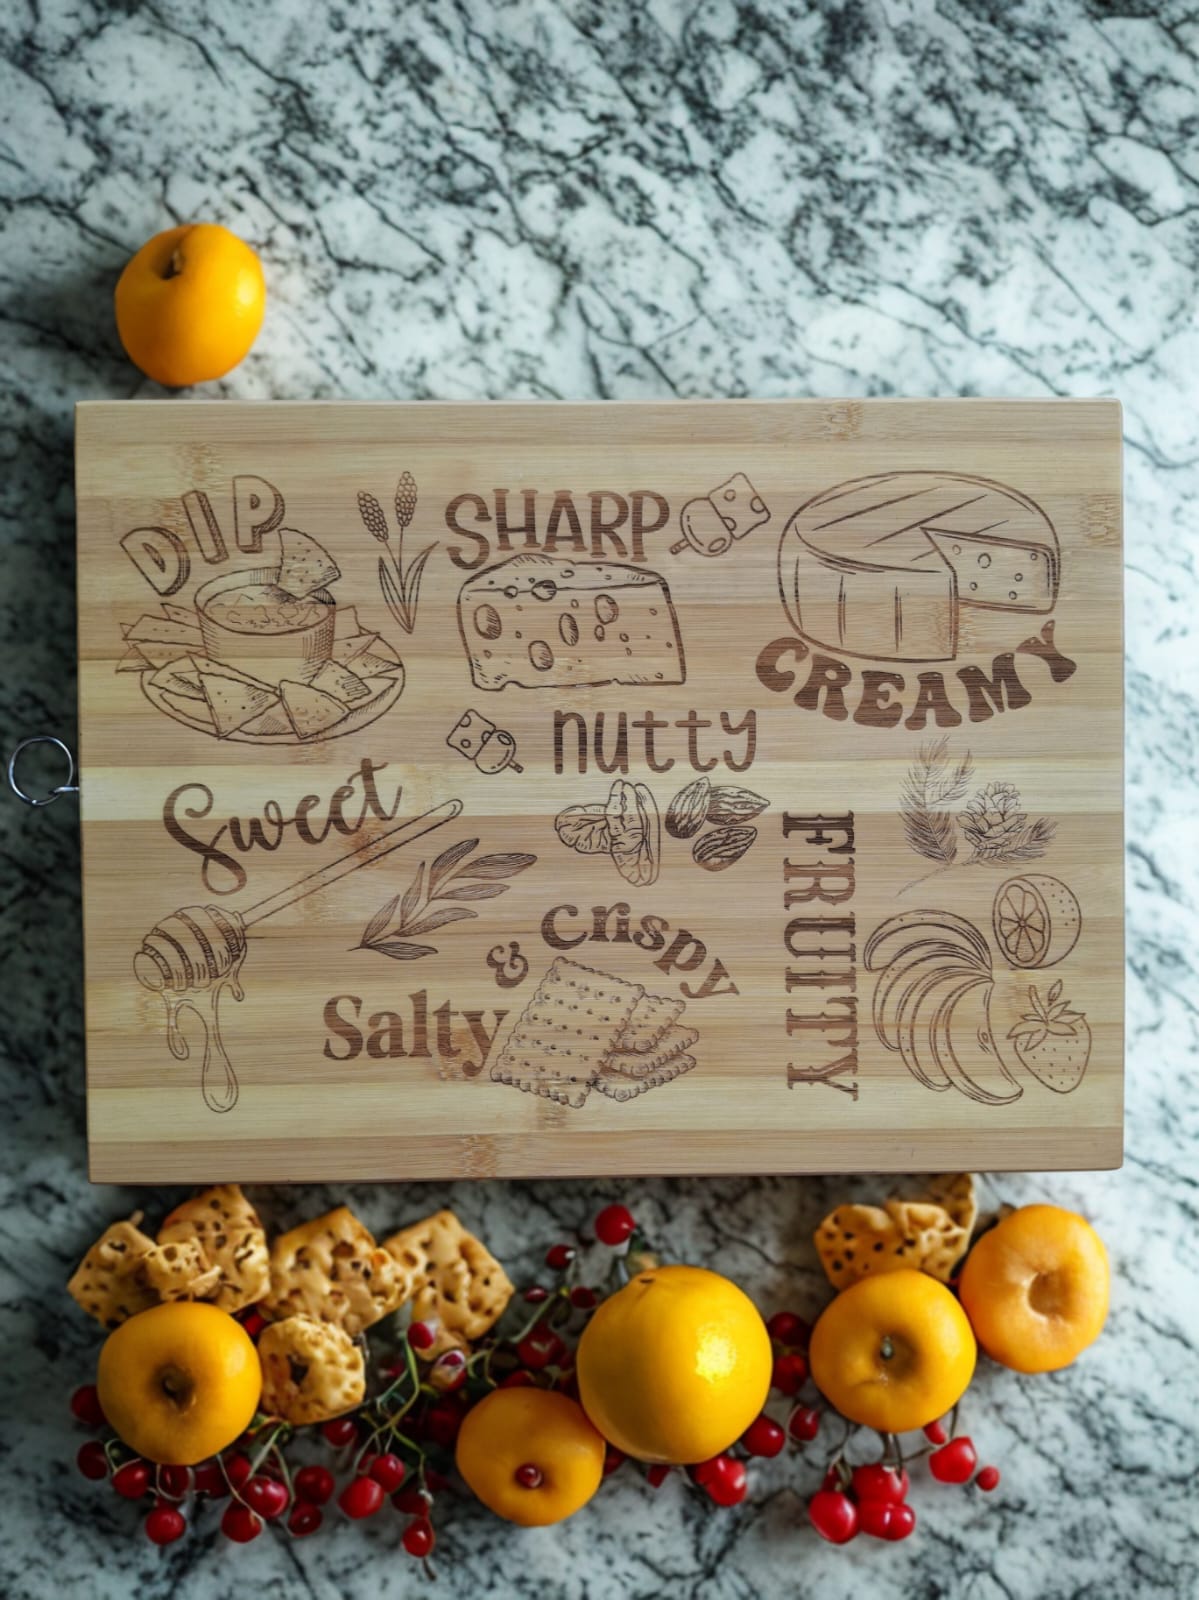 DIP
SHARP
CREAMY
nutty
Sweet
FRUITY
Salty
& Crispy